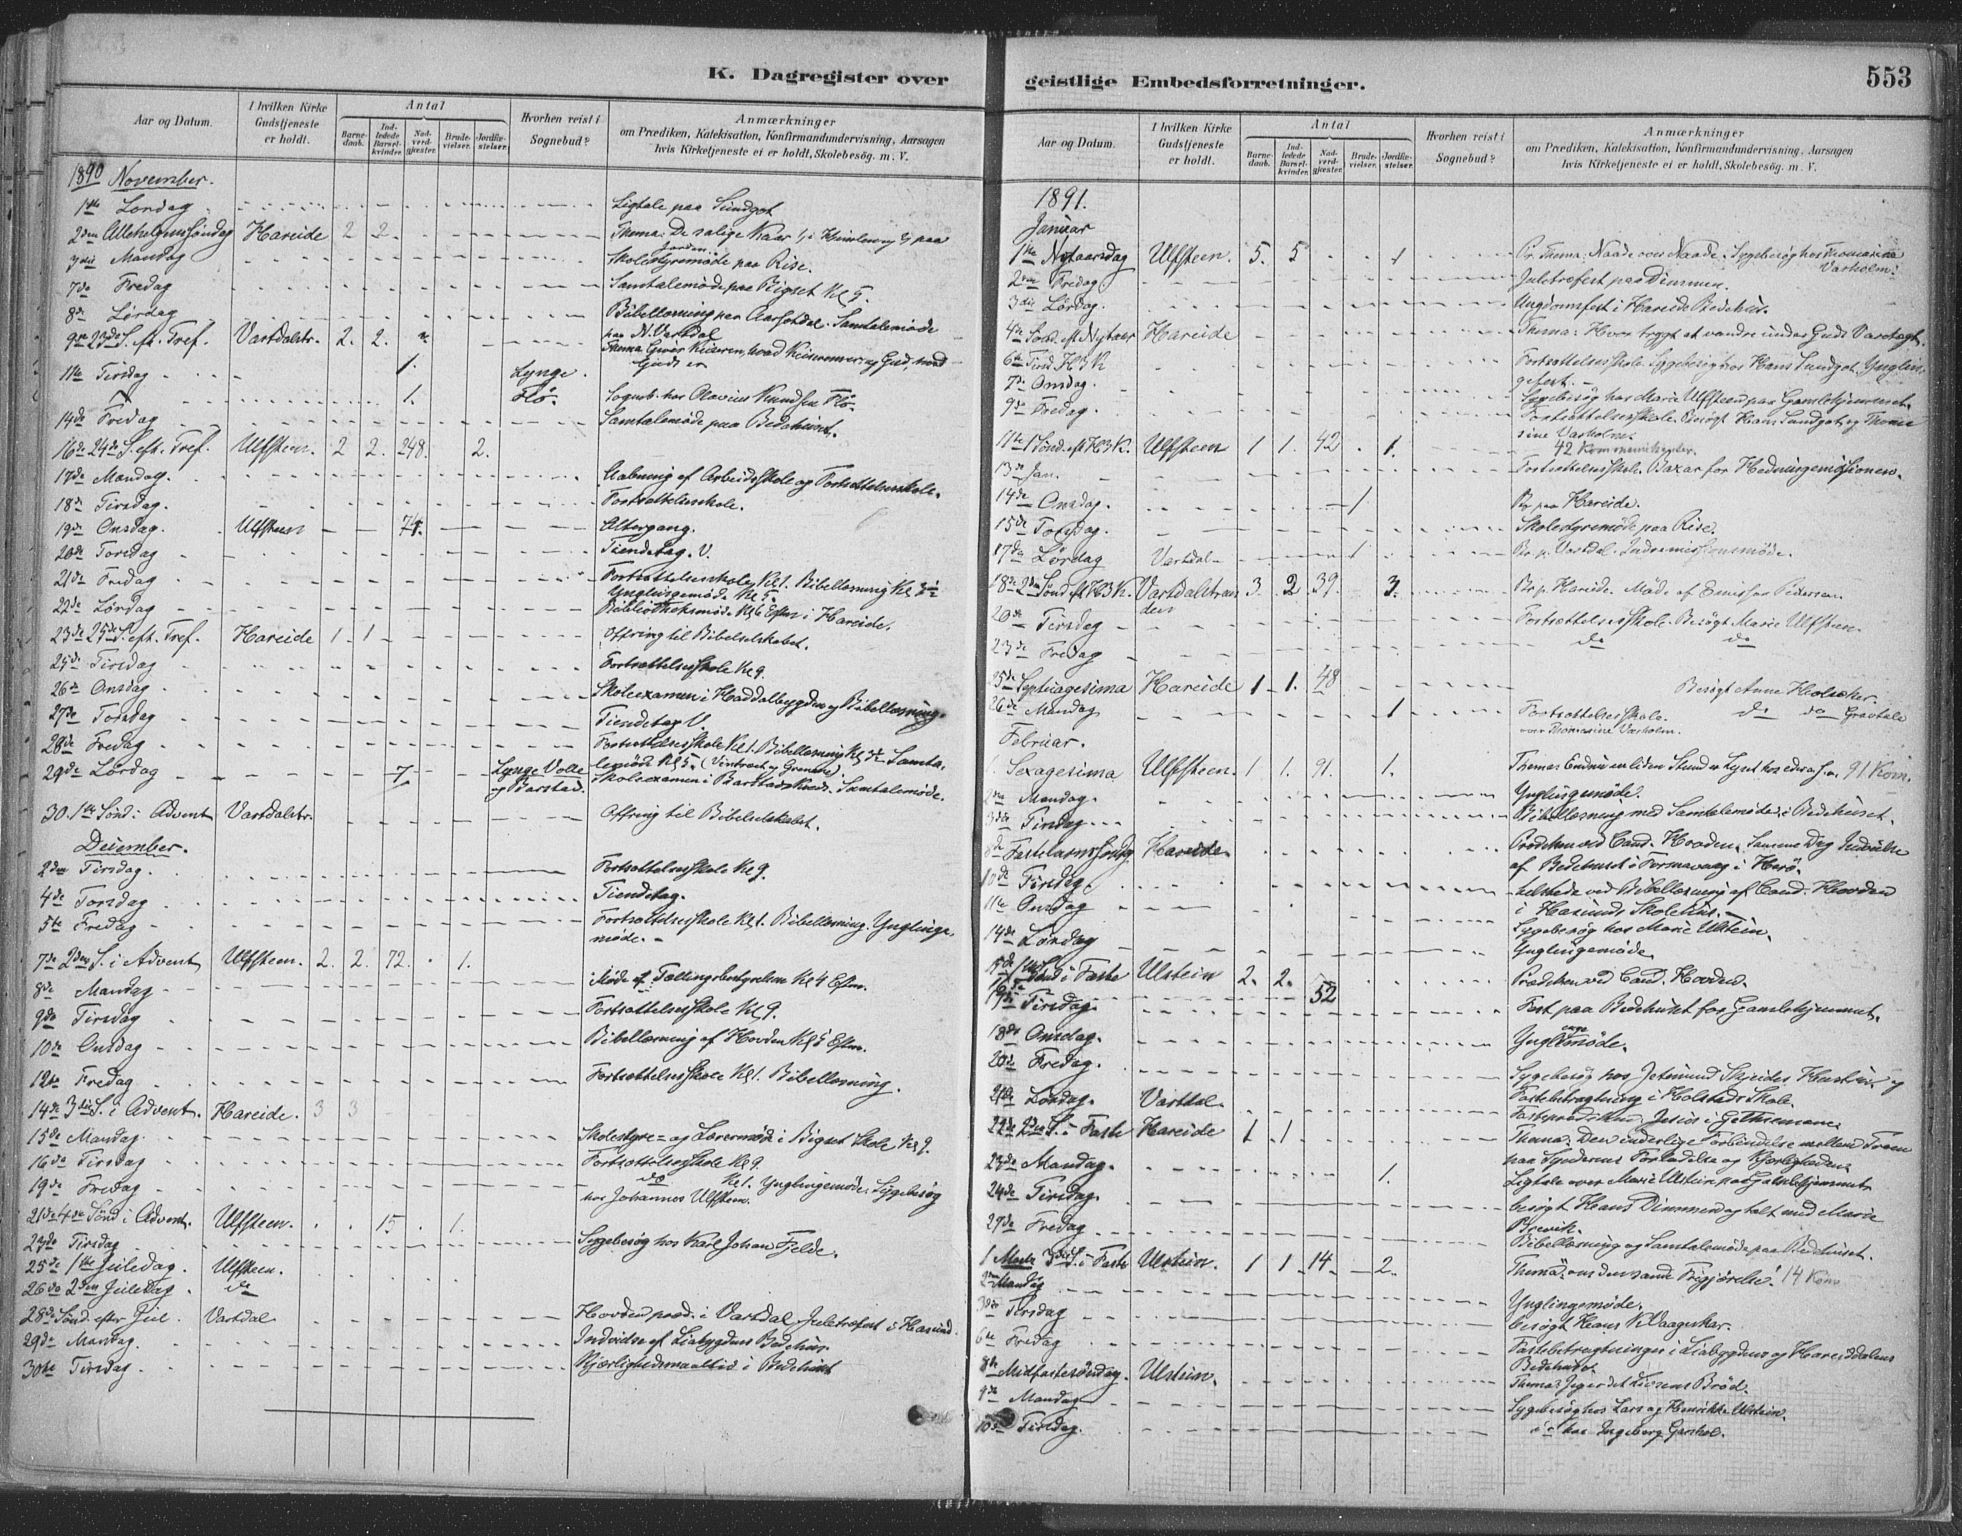 K. Dagregister over
Aar og Datum. I hvilken Kirke Gudstjeneste er holdt. Antal Barnedaab. Indledede Barselkvinder. Nadverdgjæster. Brudevielser. Jordfæstelser. Hvorhen reist i Sognebud? Anmærkninger om Prædiken, Katekisation, Konfirmandundervisning, Aarsagen hvis Kirketjeneste ei er holdt, Skolebesøg. m. V.
1890 November.
1ste Lørdag Ligtale paa Sundgot
2den Allehelgenssøndag Hareide 2 2 Thema: De salige Kaar i Himlen og paa Jorden.
3die Mandag Skolestyremøde paa Rise.
7de Fredag Samtalemøde paa Bigset Kl 5.
8de Lørdag Bibellæsning paa Aarsetdal. Samtalemøde paa N. Vartdal
9de 23de S. eft. Tref. Vartdalstr. 2. 2. Thema: Giver Keiseren, hvad Keiserens er, og Gud, hvad Guds er
11te Tirsdag 1. Lynge.
1. Flø. Sogneb. hos Olavius Knudsen Flø.
14de Fredag Samtalemøde paa Bedehuset.
16de 24de S. eft. Tref. Ulfsteen 2 2. 248. 2.
17de Mandag. Aabning af Arbeidsskole og Fortsættelsesskole.
18de Tirsdag. Fortsættelsesskole.
19de Onsdag. Ulfsteen 74. Altergang.
20de Torsdag Tiendetag. V.
21de Fredag Fortsættelsesskole Kl 1. Bibellæsning Kl 3
Ynglingemøde Kl 5.
22de Lørdag Bibliotheksmøde Kl 6 Efterm i Hareide.
23de 25de S. eft. Tref. Hareide 1 1 Offring til Bibelselskabet.
25de Tirsdag Fortsættelsesskole Kl 9.
26de Onsdag Skoleexamen i Haddalbygden og Bibellæsning.
27de Torsdag Tiendetag V.
28de Fredag Fortsættelsesskole Kl 1. Bibellæsning Kl 3. Samtalemøde Kl 5.
29de Lørdag 7. Lynge Volle og Barstad. Skoleexamen i Barstad Kreds. Samtalemøde.
30. 1ste Sønd: Advent Vartdalstr. Offring til Bibelselskabet.
December.
2den Tirsdag. Fortsættelsesskole Kl 9.
4de Torsdag Tiendetag.
5te Fredag Fortsættelsesskole Kl 1. Bibellæsning. Ynglingemøde.
7de 2den S. i Advent Ulfsteen. 2. 2. 72. 1.
8de Mandag Møde af Tællingsbestyrelsen Kl 4 Efterm.
9de Tirsdag Fortsættelsesskole Kl 9.
10de Onsdag Bibellæsning af Hovden Kl 5 Efterm.
12te Fredag Fortsættelsesskole Kl 1. Bibellæsning.
14de 3die S. i Advent. Hareide. 3 3
15de Mandag. Skolestyre- og Lærermøde i Bigset Skole Kl 9.
16de Tirsdag Fortsættelsesskole Kl 9.
19de Fredag do Kl 1. Ynglingemøde. Sygebesøg hos Johannes Ulfsteen.
21de 4de Sønd i Advent. Ulfsteen. 15 1.
23de Tirsdag Sygebesøg hos Karl Johan Fjelde.
25de 1ste Juledag. Ulfsteen.
26de 2den Juledag. do
28de Sønd. efter Jul. Vartdal Hovden præd. i Vartdal. Juletræfest i Hasund.
29de Mandag. Indvielse af Liabygdens Bedehus.
30te Tirsdag. Kjærlighedsmaaltid i Bedehuset
geistlige Embedsforretninger. 553
Aar og Datum. I hvilken Kirke Gudstjeneste er holdt. Antal Barnedaab. Indledede Barselkvinder. Nadverdgjæster. Brudevielser. Jordfæstelser. Hvorhen reist i Sognebud? Anmærkninger om Prædiken, Katekisation, Konfirmandundervisning. Aarsagen hvis Kirketjeneste ei er holdt, Skolebesøg. m. V.
1891.
Januar
1ste Nytaarsdag Ulfsteen. 5. 5 1 Pr. Thema: Naade over Naade. Sygebesøg hos Thomasine Varholm.
2den Fredag Juletræfest paa Dimmen.
3die Lørdag. Ungdomsfest i Hareide Bedehus.
4de Sønd. ef. Nytaar Hareide Thema: Hvor trygt at vandre under Guds Varetægt.
6te Tirsd. H3K Fortsættelsesskole. Sygebesøg hos Hans Sundgot. Ynglingefest.
7de Onsdag.
9de Fredag. Sygebesøg hos Marie Ulfsteen paa Gamlehjemmet.
Fortsættelsesskole. Besøgt Hans Sundgot og Thomasine Varholm.
11te 1 Sønd. eft H3K. Ulfsteen 1 1. 42 1. 42 Kommunikanter.
13de Jan. Fortsættelsesskole. Bazar for Hedningemissionen.
14de Onsdag. 1 Br. paa Hareide.
15de Torsdag. Skolestyremøde paa Rise.
17de Lørdag Vartdal 1 Br. p. Vartdal. Indremissionsmøde.
18de 2den Sønd eft H3K. Vartdalstranden 3 2 39. 3. Br. p. Hareide. Møde af Emissær Pedersen.
20de Tirsdag Fortsættelsesskole. Besøgt Marie Ulfsteen.
23de Fredag do do
25de Septuagesima Hareide 1 1. 48 Besøgt Anne
26de Mandag 1 Fortsættelsesskole. do do Gravtale over Thomasine Varholm.
Februar.
1 Sexagesima Ulfsteen. 1 1. 91. 1. Thema: Endnu en liden Stund er Lyset hos eder 91 Kom.
2den Mandag. Ynglingemøde.
3die Tirsdag Bibellæsning med Samtalemøde i Bedehuset.
8de Fastelavnssøndag Hareide. Prædiken ved Cand. Hovden. Samme Dag Indvielse af Bedehuset i Formavaag i Herø.
10de Tirsdag. tilstede ved Bibellæsning af Cand. Hovden
11te Onsdag i Hasunds Skolehus.
14de Lørdag Sygebesøg hos Marie Ulstein.
Ynglingemøde
15de 1ste S. i Faste Ulstein 2. 2. 52 Prædiken ved Cand. Hovden.
17de Tirsdag Fest paa Bedehuset for Gamlehjemmet.
18de Onsdag. Ynglingemøde.
20de Fredag. Sygebesøg hos Jetmund Skeides Hustru og
21de Lørdag. Vartdal Fastebetragtning i Holstads Skole.
Fasteprædiken: Jesus i Gethsemane.
22de 2den S. i Faste Hareide 1 1 Thema: Den inderlige Forbindelse mellem Troen paa Syndernes Forladelse og Kjærligheden.
23de Mandag. 1. Ligtale over Marie Ulstein paa Gamlehjemmet.
24de Tirsdag. besøgt Hans Dimmen og talt med Marie Brevik.
27de Fredag Bibellæsning og Samtalemøde paa Bedehuset.
1 Marts 3die S. i Faste Ulstein. 1 1 14 2. Thema: om den sande Frigjørelse. 14 Kom
2den Mandag Ynglingemøde.
3die Tirsdag besøgt Hans K Vaageskar.
6te Fredag Fastebetragtninger i Liabygdens og Hareiddalens Bedehuse.
8de Midfastesøndag. Ulstein. Thema: Jeg er det Livsens Brød.
9de Mandag Sygebesøg hos Lars og Henrikke Ulstein.
10de Tirsdag. hos Ingeborg Garshol.